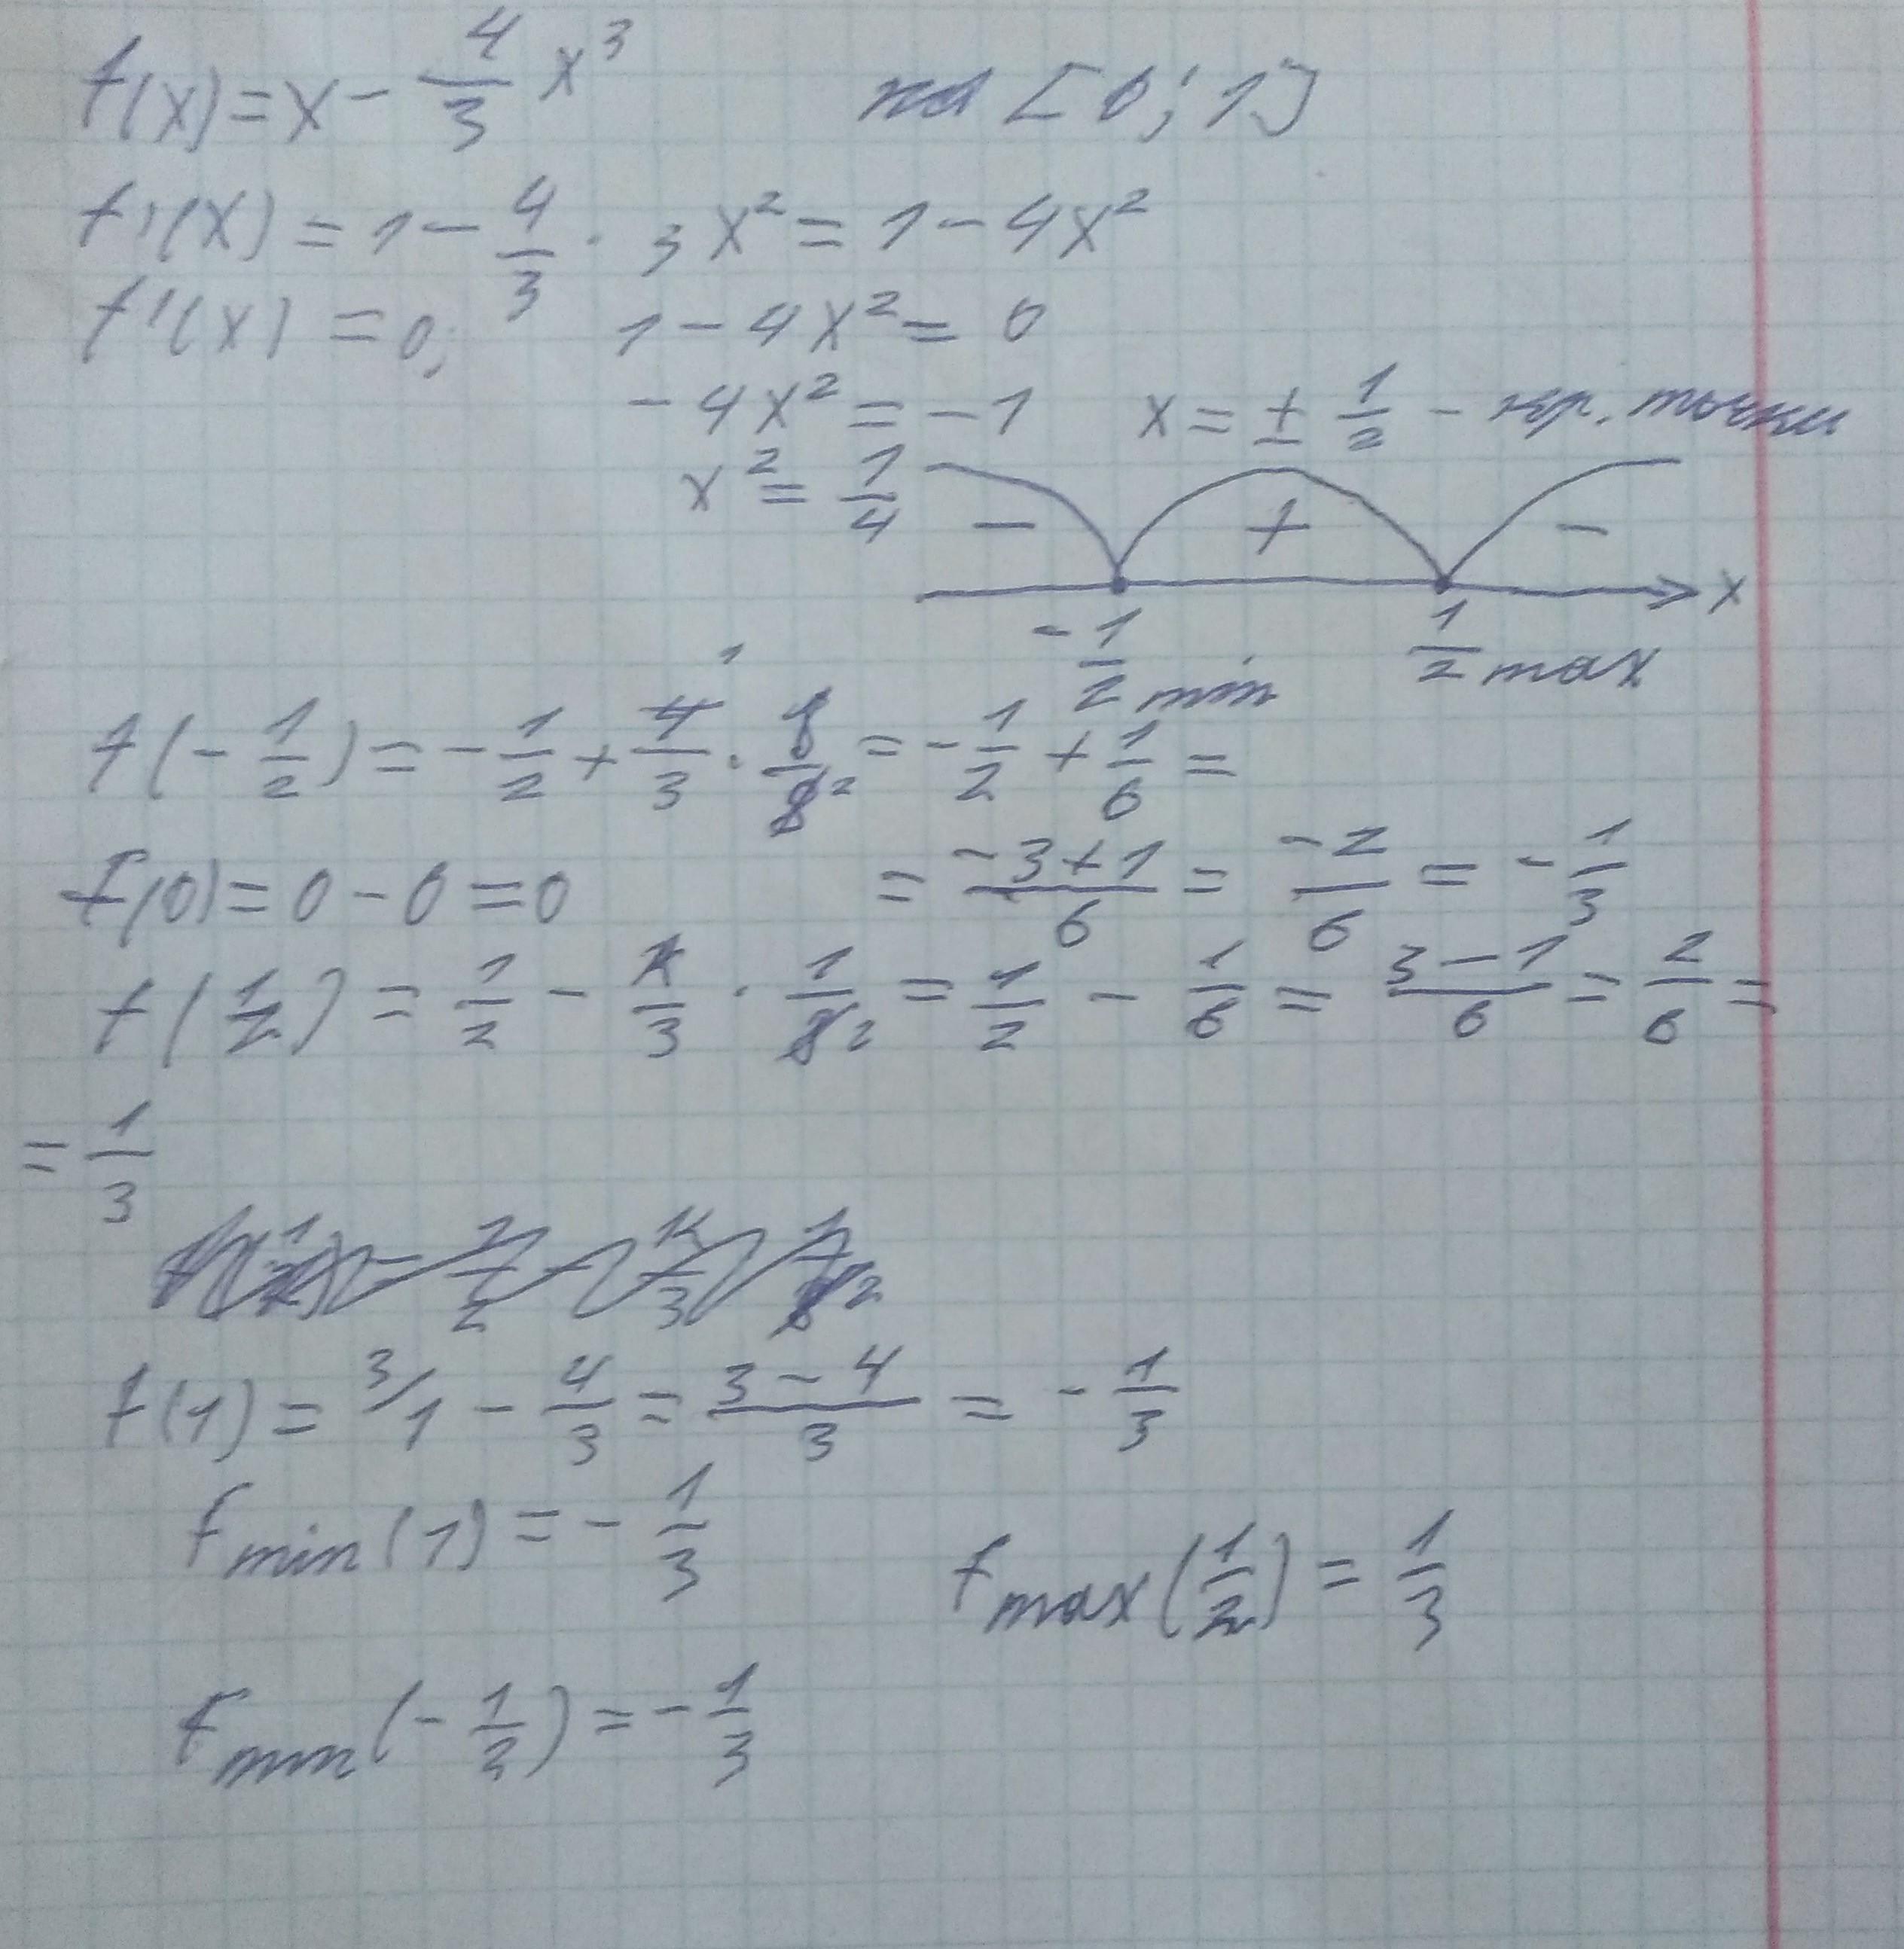 f(x) = x - 4/3 x³ на [0; 1]
f'(x) = 1 - 4/3 · 3x² = 1 - 4x²
f'(x) = 0; 1 - 4x² = 0
-4x² = -1 x = ± 1/2 - кр. точки
x² = 1/4
- + -
x
-1/2 min 1/2 max
f(-1/2) = -1/2 + 4/3 · 1/8 = -1/2 + 1/6 =
1
2
= (-3+1)/6 = -2/6 = -1/3
f(0) = 0 - 0 = 0
f(1/2) = 1/2 - 4/3 · 1/8 2 = 1/2 - 1/6 = (3-1)/6 = 2/6 =
= 1/3
f(1) = 3/1 - 4/3 = (3-4)/3 = -1/3
f min (1) = -1/3
f max (1/2) = 1/3
f min (-1/2) = -1/3